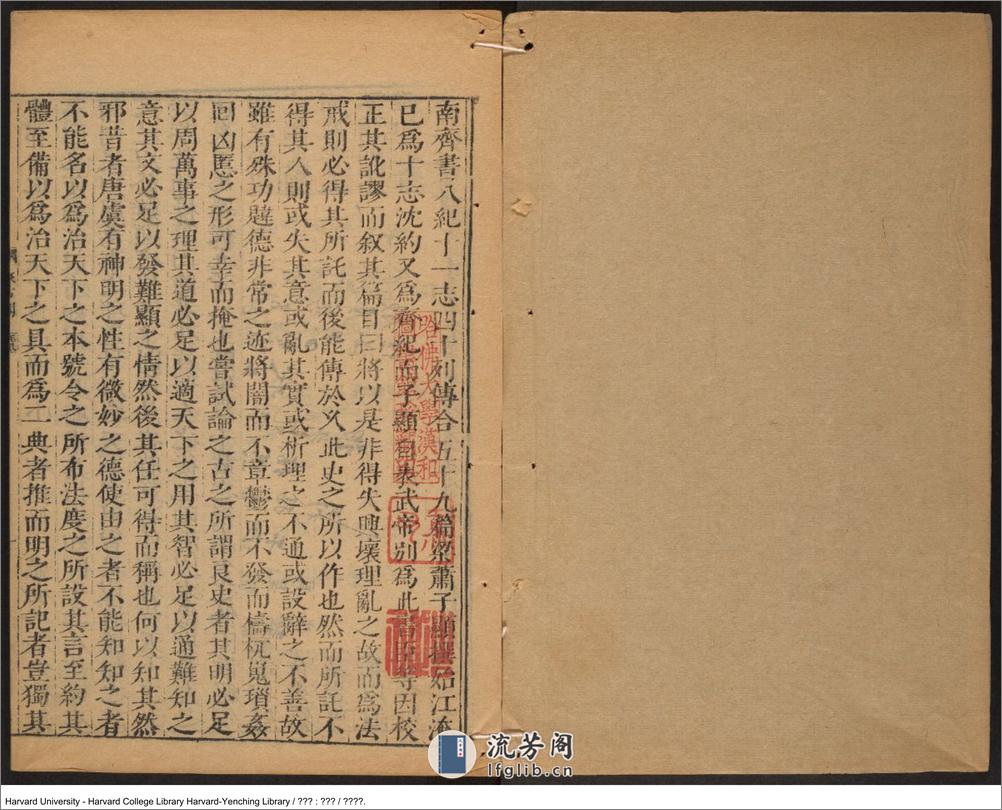 南齊書八紀十一志四十列傳合五十九篇梁蕭子顯撰始江淹
已爲十志沈約又爲齊紀而子顯自表武帝別爲此書臣等因校
正其訛謬而叙其篇目曰將以是非得失興壞理亂之故而爲法
戒則必得其所託而後能傳於久此史之所以作也然而所託不
得其人則或失其意或亂其實或析理之不通或設辭之不善故
雖有殊功韙德非常之迹將闇而不章鬱而不發而檮杌嵬瑣姦
回凶慝之形可幸而掩也嘗試論之古之所謂良史者其明必足
以周萬事之理其道必足以適天下之用其智必足以通難知之
意其文必足以發難顯之情然後其任可得而稱也何以知其然
邪昔者唐虞有神明之性有微妙之德使由之者不能知知之者
不能名以爲治天下之本號令之所布法度之所設其言至約其
體至備以爲治天下之具而爲二典者推而明之所記者豈獨其
哈佛大學漢和
流芳阁
lfglib.cn
Harvard University - Harvard College Library Harvard-Yenching Library / ??? : ??? / ????.